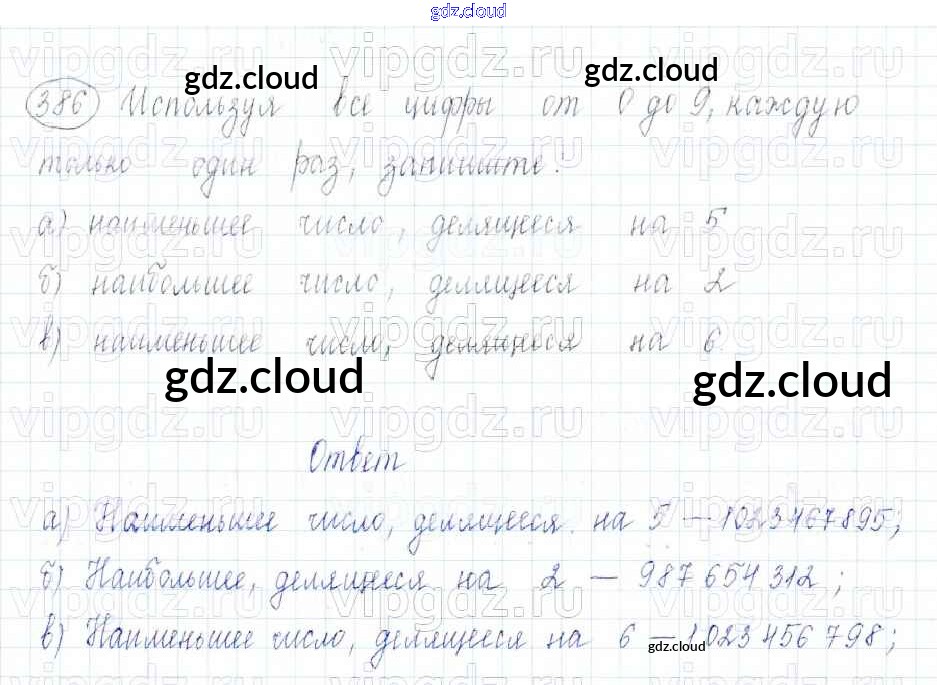 gdz.cloud
gdz.cloud gdz.cloud
386 Используя все цифры от 0 до 9, каждую
только один раз, запишите:
а) наименьшее число, делящееся на 5
б) наибольшее число, делящееся на 2
в) наименьшее число, делящееся на 6.
gdz.cloud gdz.cloud
Ответ
а) Наименьшее число, делящееся на 5 – 1023467895;
б) Наибольшее, делящееся на 2 – 987654312;
в) Наименьшее число, делящееся на 6 – 1023456798;
gdz.cloud
vipgdz.ru